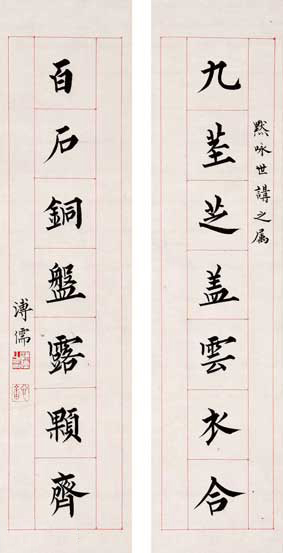 黙咏世講之属
九茎芝盖雲衣合
百石銅盤露顆齊
溥儒